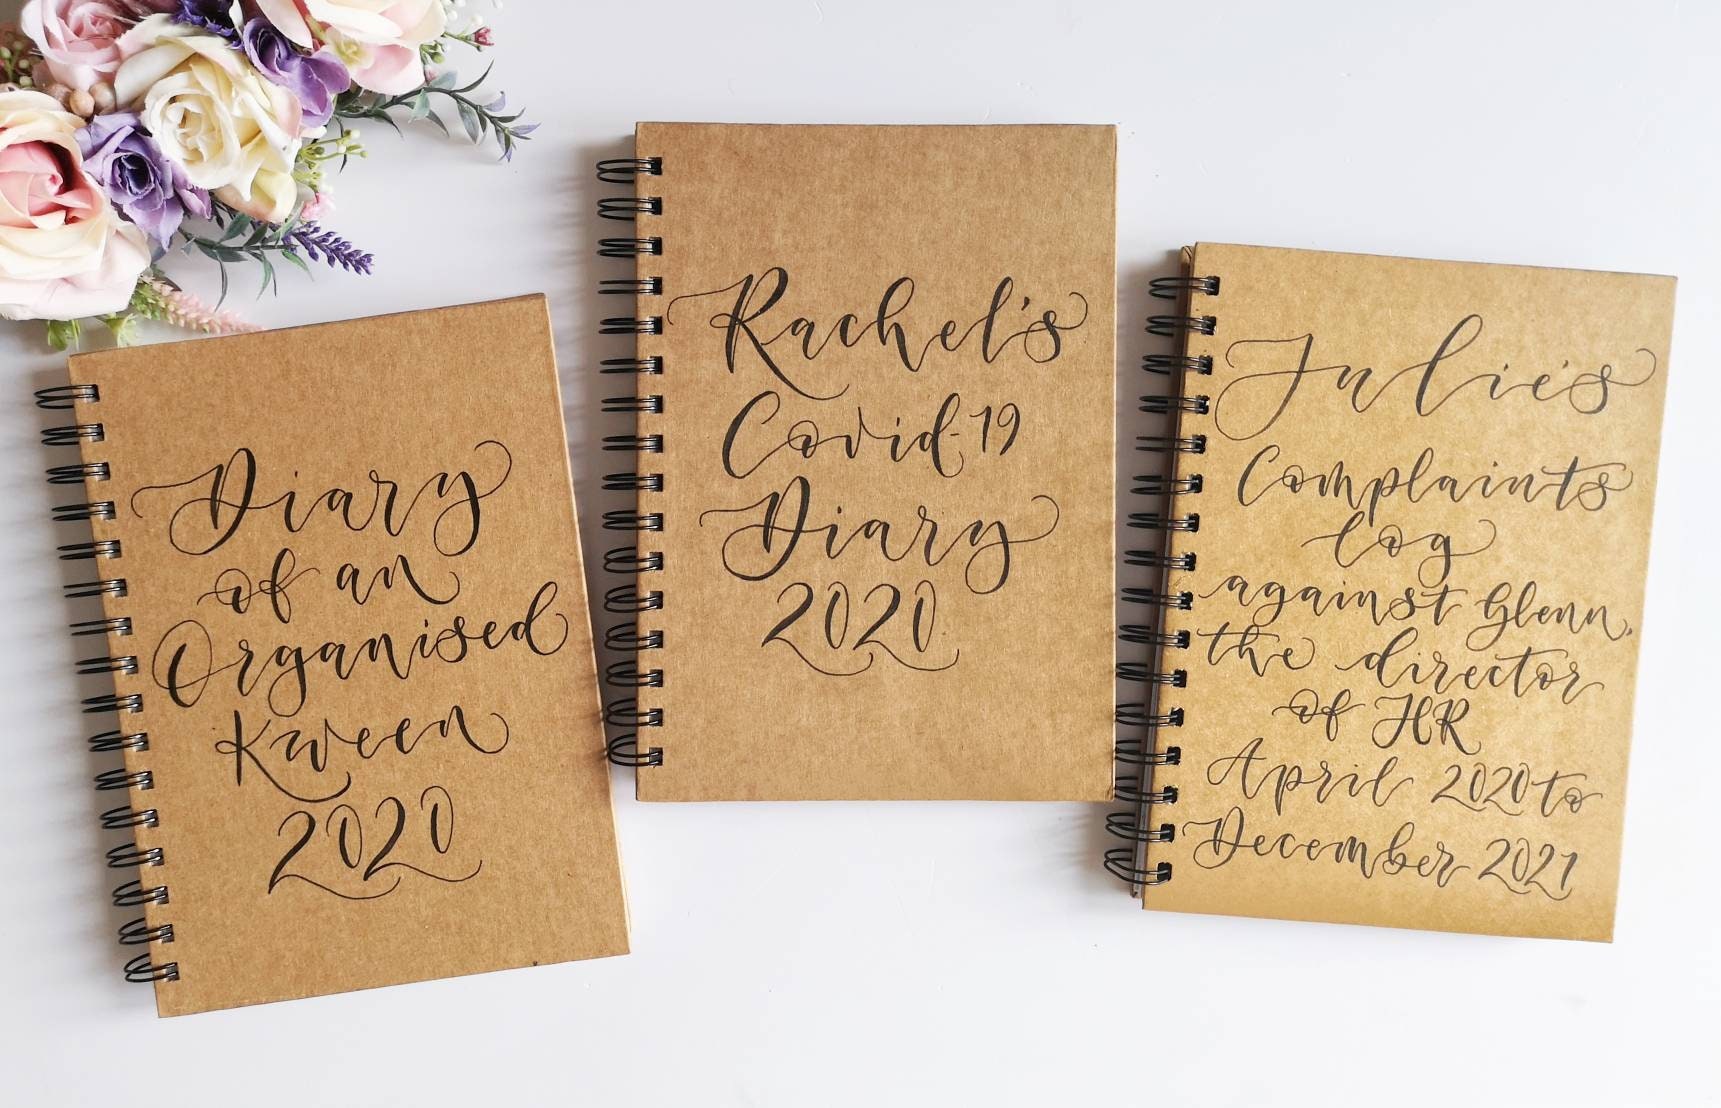 Diary
of an
Organised
Kween
2020
Rachel's
Covid-19
Diary
2020
Julie's
Complaints
log
against Glenn,
the director
of HR
April 2020 to
December 2021